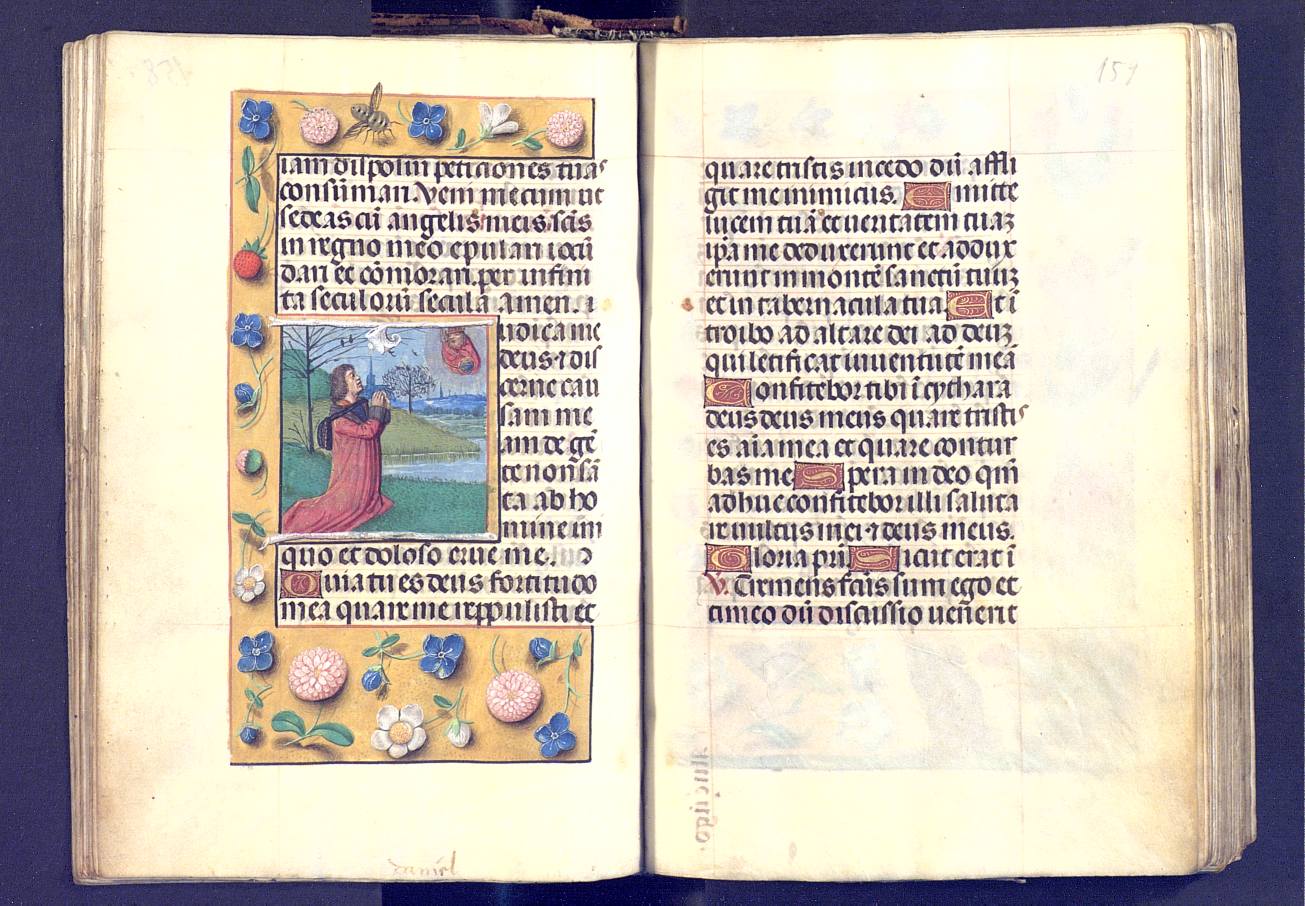 iam disposui peticiones tuas
consumari. Veni mecum ut
sedeas cū angelis meis scīs
in regno meo epulari iocū
dari et cōmorari per infini
ta seculorū secula amen. i
udica me
deus ⁊ dis
cerne cau
sam me
am de gē
te non sā
cta ab ho
mine ini
quo et doloso erue me.
Quia tu es deus fortitudo
mea quare me reppulisti et
daniel
159
quare tristis incedo dū affli
git me inimicus. Emitte
lucem tuā et veritatem tuaz
ipa me deduxerunt et addux
erunt in montē sanctū tuūz
et in tabernacula tua Et ī
troibo ad altare dei ad deuz
qui letificat iuventutē meā
Confitebor tibi ī cythara
deus deus meus quare tristis
es aīa mea et quare contur
bas me Spera in deo qm̄
adhuc confitebor illi saluta
re vultus mei ⁊ deus meus.
Gloria prī Sicut erat ī
V. Tremens fctūs sum ego et
timeo dū discussio venerit